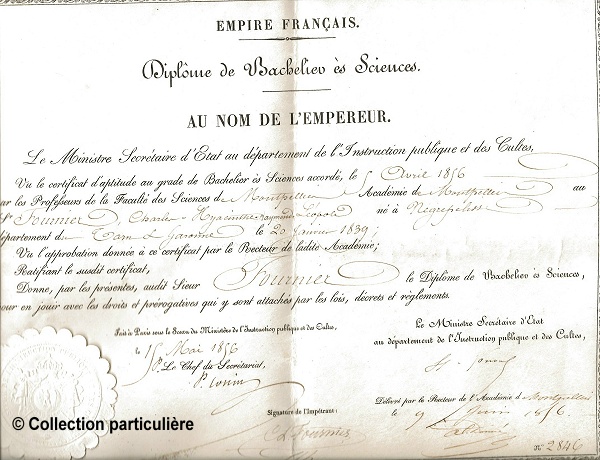 EMPIRE FRANÇAIS.
Diplôme de Bachelier ès Sciences.
AU NOM DE L'EMPEREUR.
Le Ministre Secrétaire d'Etat au département de l'Instruction publique et des Cultes,
Vu le certificat d'aptitude au grade de Bachelier ès Sciences accordé, le 5 Avril 1856
par les Professeurs de la Faculté des Sciences de Montpellier Académie de Montpellier au
Sr Fournier, Charles Hyacinthe Raymond Léopold né à Negrepelisse
département du Tarn & Garonne le 20 Janvier 1839;
Vu l'approbation donnée à ce certificat par le Recteur de ladite Académie;
Ratifiant le susdit certificat,
Donne, par les présentes, audit Sieur Fournier le Diplôme de Bachelier ès Sciences,
pour en jouir avec les droits et prérogatives qui y sont attachés par les lois, décrets et règlements.
Fait à Paris sous le Sceau du Ministère de l'Instruction publique et des Cultes,
le 15 Mai 1856
Pr. Le Chef du Secrétariat,
Le Ministre Secrétaire d'Etat
au département de l'Instruction publique et des Cultes,
Délivré par le Recteur de l'Académie d Montpellier
le 9 Juin 1856.
Signature de l'Impétrant:
Fournier
N° 2846
© Collection particulière